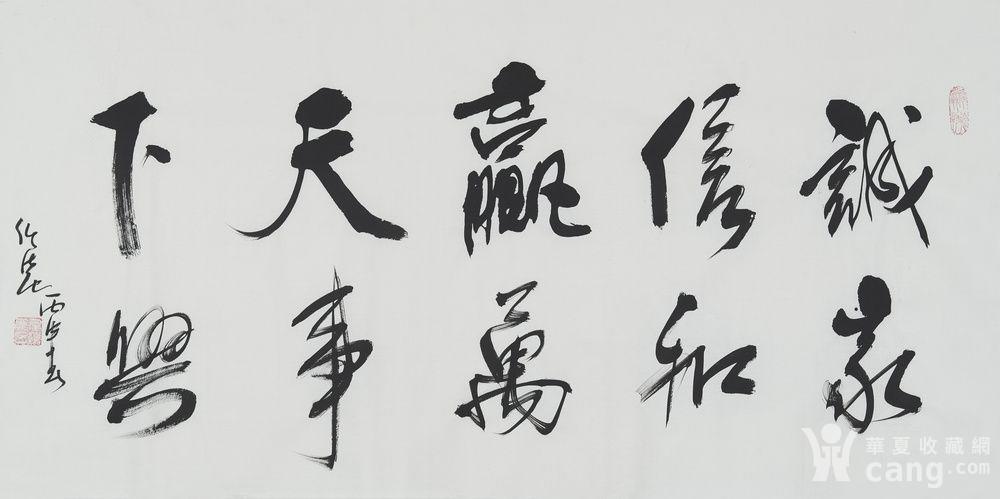 誠信贏天下
家和萬事興
丙申春
華夏收藏網
cang.com